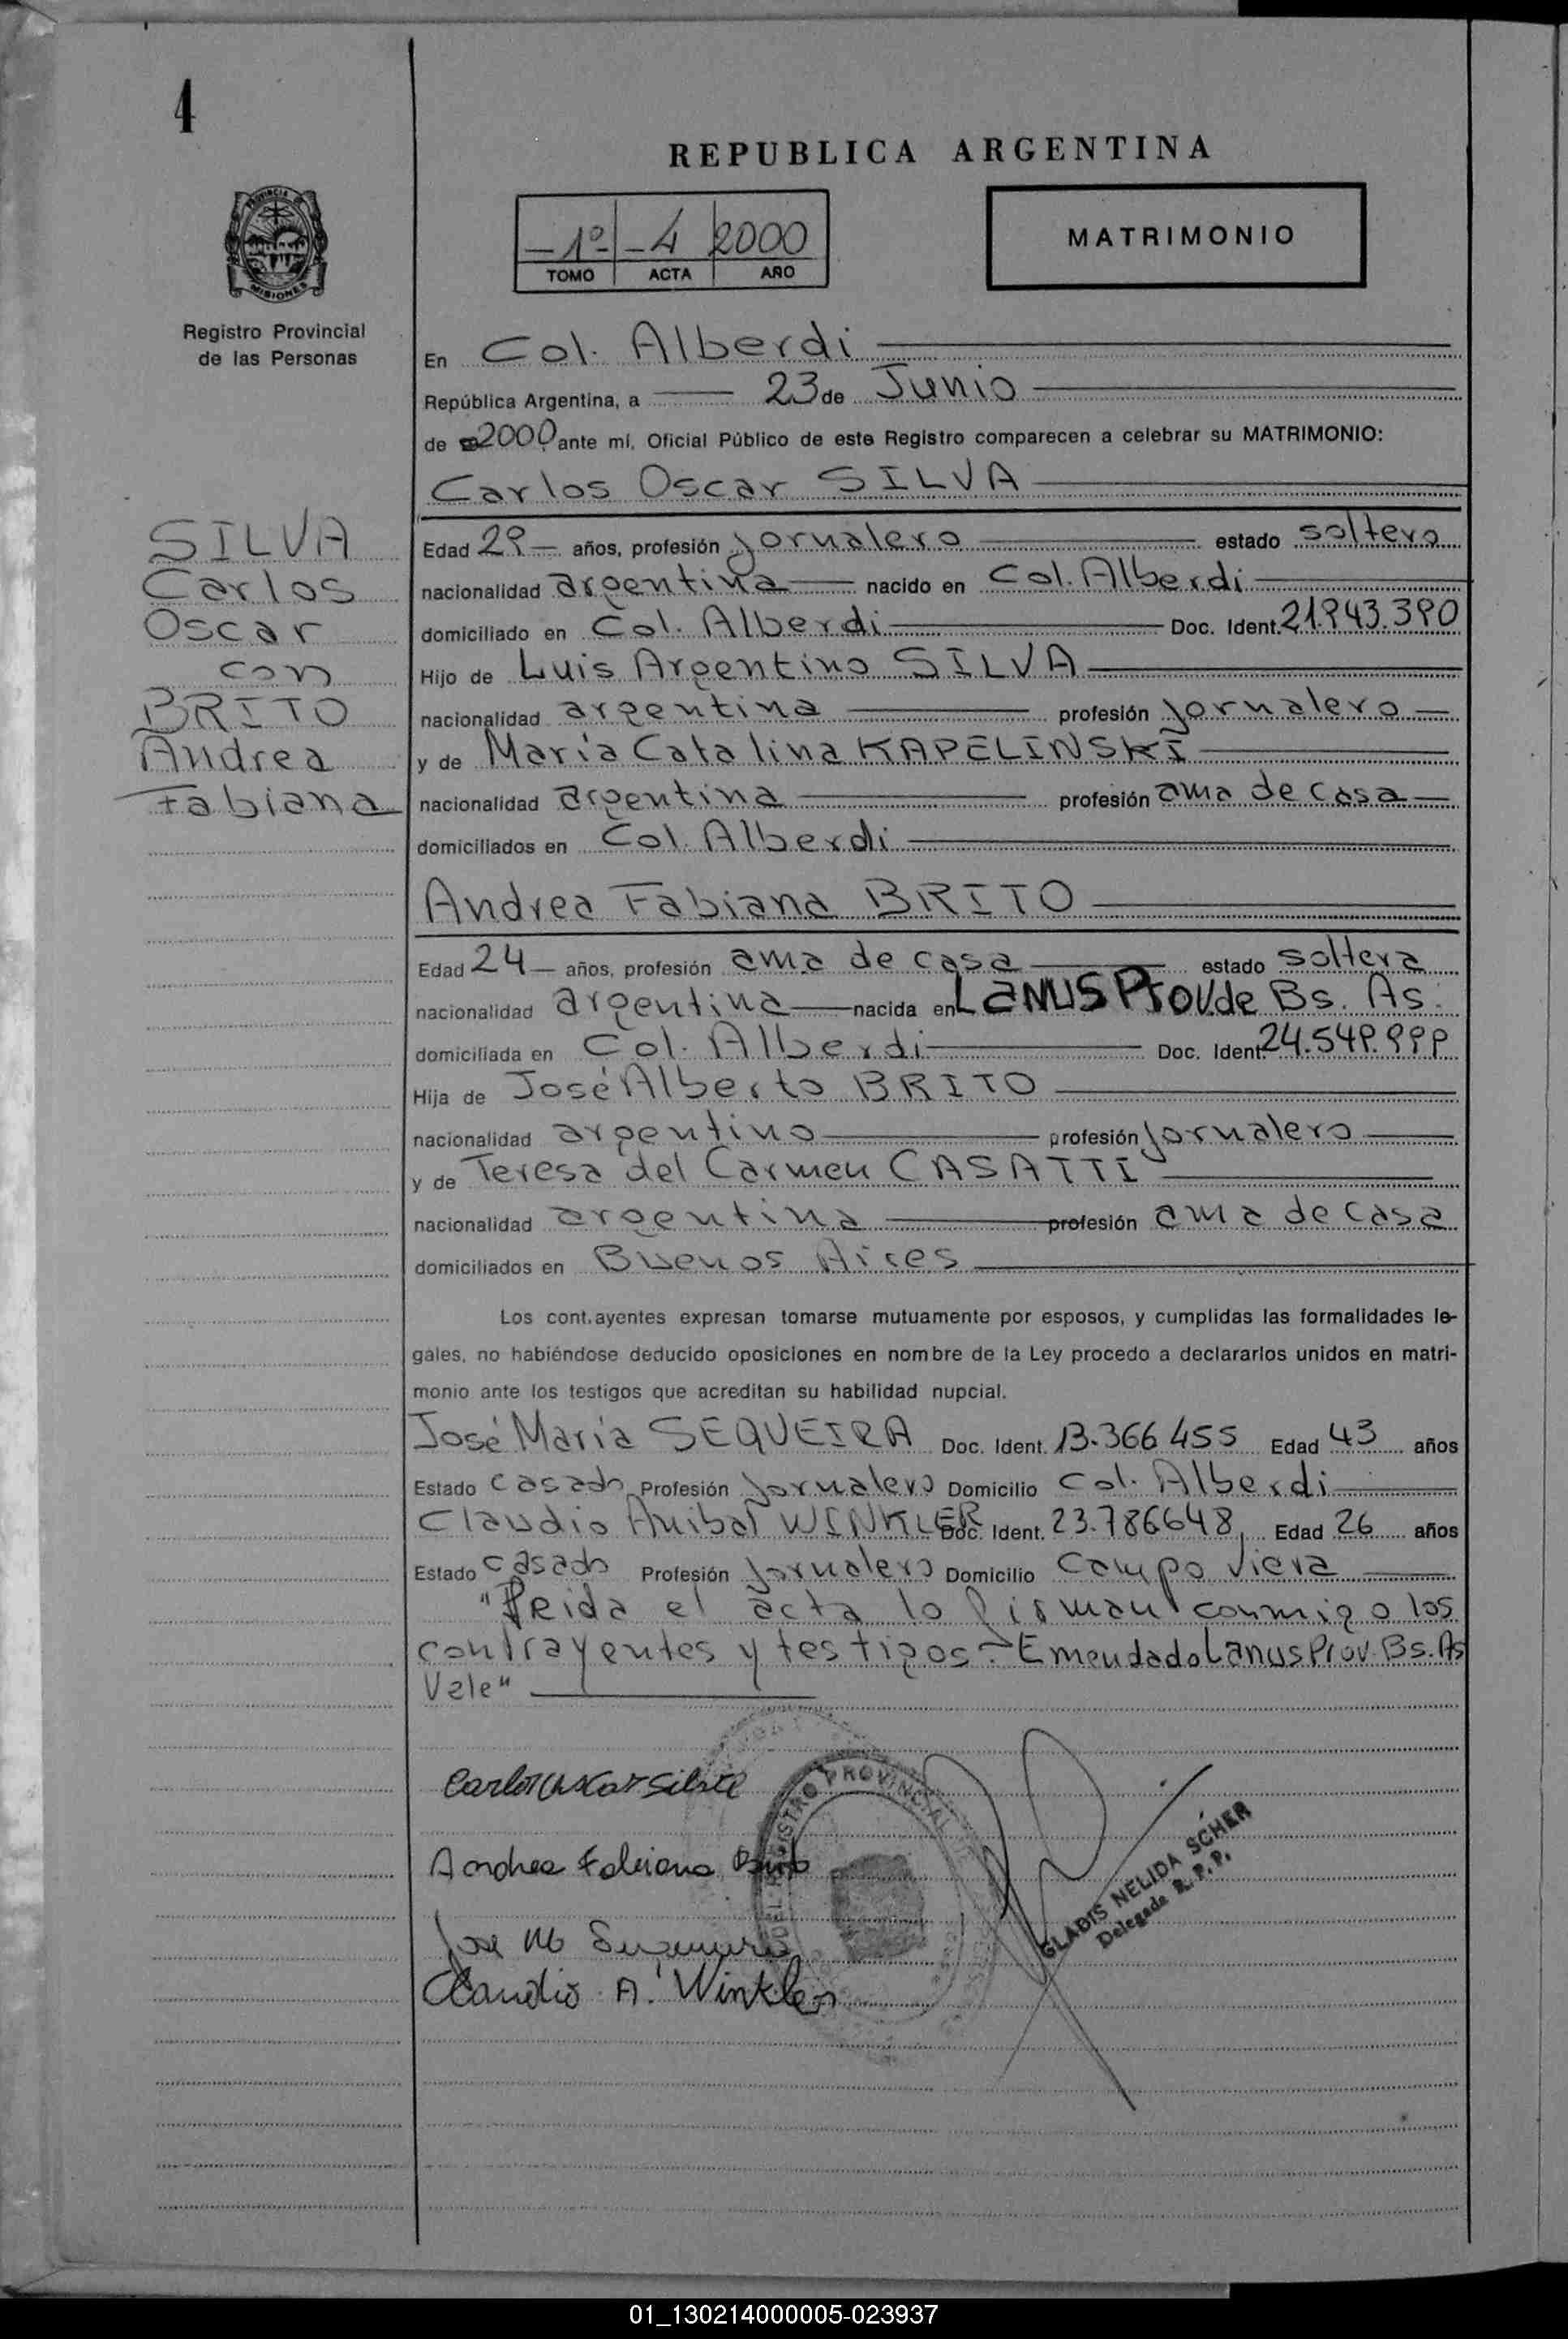 4
REPUBLICA ARGENTINA
-1º- -4 2000
TOMO ACTA AÑO
MATRIMONIO
PROVINCIA DE
MISIONES
Registro Provincial
de las Personas
En Col. Alberdi
República Argentina, a 23 de Junio
de 2000 ante mí, Oficial Público de este Registro comparecen a celebrar su MATRIMONIO:
Carlos Oscar SILVA
SILVA
Carlos
Oscar
con
BRITO
Andrea
Fabiana
Edad 29 años, profesión jornalero estado soltero
nacionalidad argentina nacido en Col. Alberdi
domiciliado en Col. Alberdi Doc. Ident. 21.943.390
Hijo de Luis Argentino SILVA
nacionalidad argentina profesión jornalero
y de María Catalina KAPELINSKI
nacionalidad argentina profesión ama de casa
domiciliados en Col. Alberdi
Andrea Fabiana BRITO
Edad 24 años, profesión ama de casa estado soltera
nacionalidad argentina nacida en LANUS Prov. de Bs. As.
domiciliada en Col. Alberdi Doc. Ident. 24.549.999
Hija de José Alberto BRITO
nacionalidad argentino profesión jornalero
y de Teresa del Carmen CASATTI
nacionalidad argentina profesión ama de casa
domiciliados en Buenos Aires
Los cont.ayentes expresan tomarse mutuamente por esposos, y cumplidas las formalidades le-
gales, no habiéndose deducido oposiciones en nombre de la Ley procedo a declararlos unidos en matri-
monio ante los testigos que acreditan su habilidad nupcial.
José María SEQUEIRA Doc. Ident. 13.366455 Edad 43 años
Estado casado Profesión jornalero Domicilio Col. Alberdi
Claudio Anibal WINKLER Doc. Ident. 23.786648 Edad 26 años
Estado casado Profesión jornalero Domicilio Campo Viera
"Leida el acta lo firman conmigo los
contrayentes y testigos.- Emendado Lanus Prov. Bs. As
Vale"
Carlos Oscar Silva
Andrea Fabiana Brito
REGISTRO PROVINCIAL
GLADIS NELIDA SCHER
Delegada R. P. P.
Jose M
Claudio A. Winkler
01_130214000005-023937